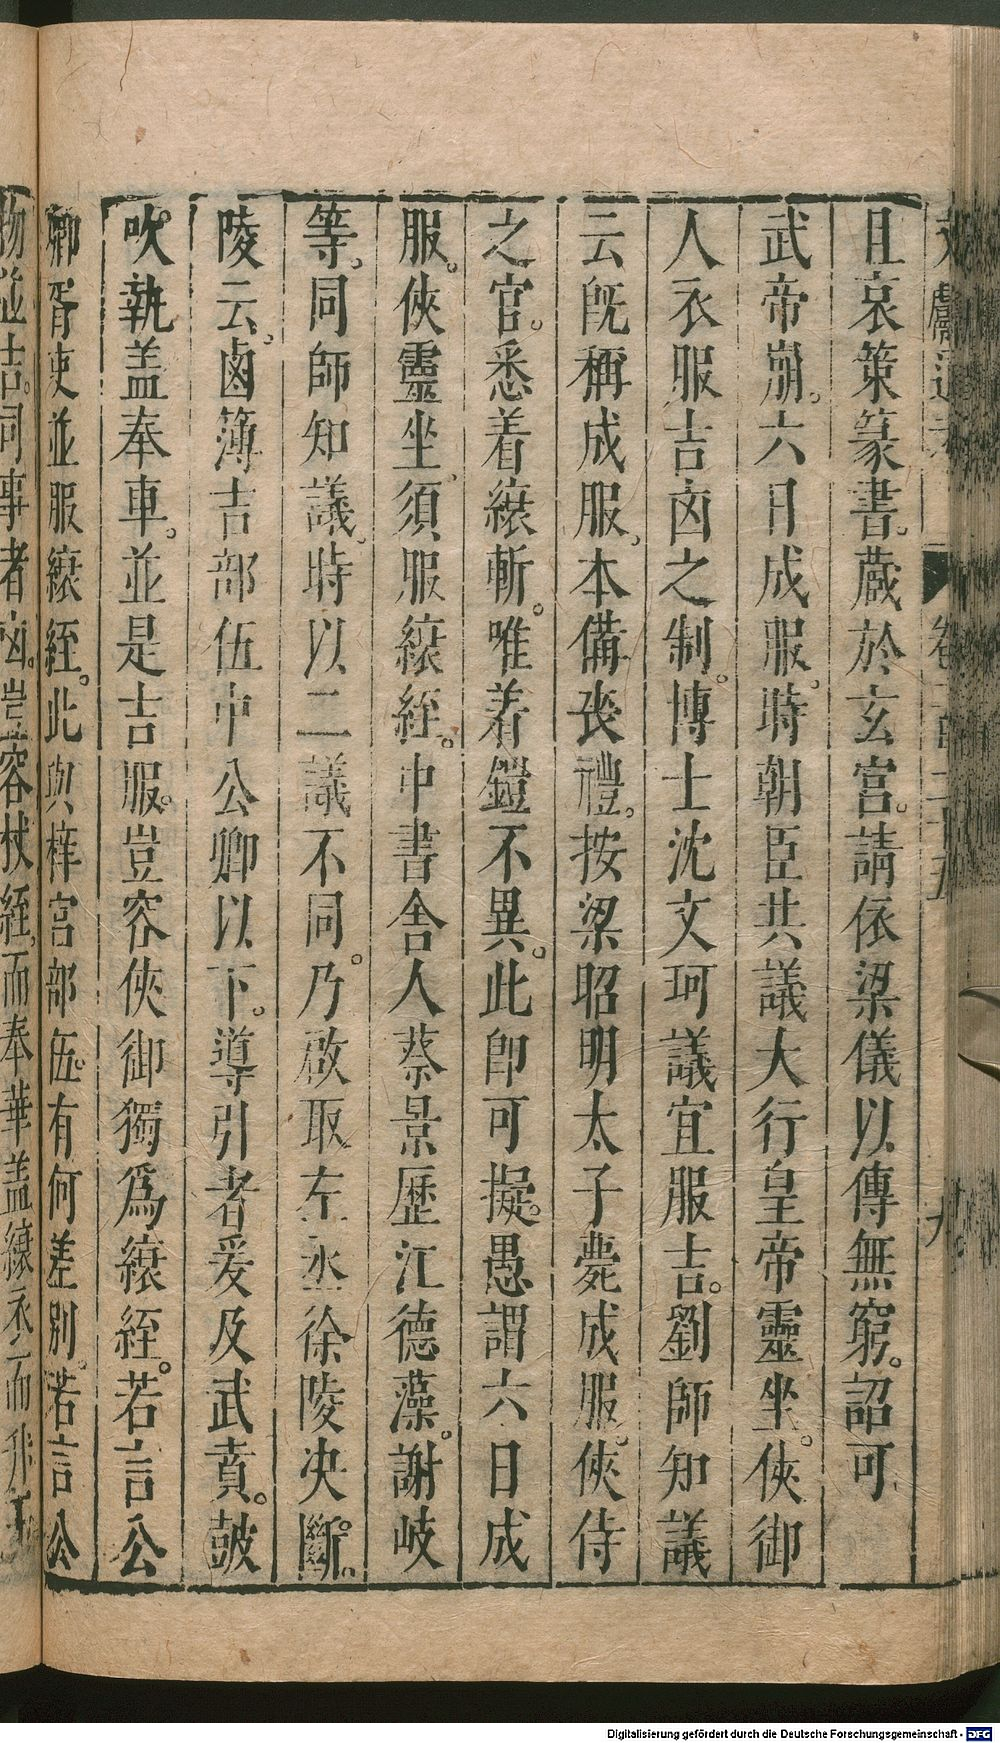 且哀策篆書。藏於玄宮。請依梁儀以傳無窮。詔可
武帝崩。六日成服。時朝臣共議大行皇帝靈坐。俠御
人衣服吉凶之制。博士沈文珂議宜服吉。劉師知議
云旣稱成服。本備喪禮。按梁昭明太子薨成服。俠侍
之官。悉着縗斬。唯着鎧不異。此卽可擬。愚謂六日成
服。俠靈坐。須服縗絰。中書舍人蔡景歷江德藻。謝岐
等。同師知議。時以二議不同。乃啟取左丞徐陵决斷。
陵云。鹵簿吉部伍中公卿以下。導引者爰及武賁。鼓
吹。執盖奉車。並是吉服。豈容俠御獨爲縗絰。若言公
卿胥吏並服縗絰。此與梓宮部伍。有何差別。若言公
物並吉。司事者凶。豈容杖絰。而奉華盖縗衣而升玉
卷一百二十五
九
Digitalisierung gefördert durch die Deutsche Forschungsgemeinschaft - DFG